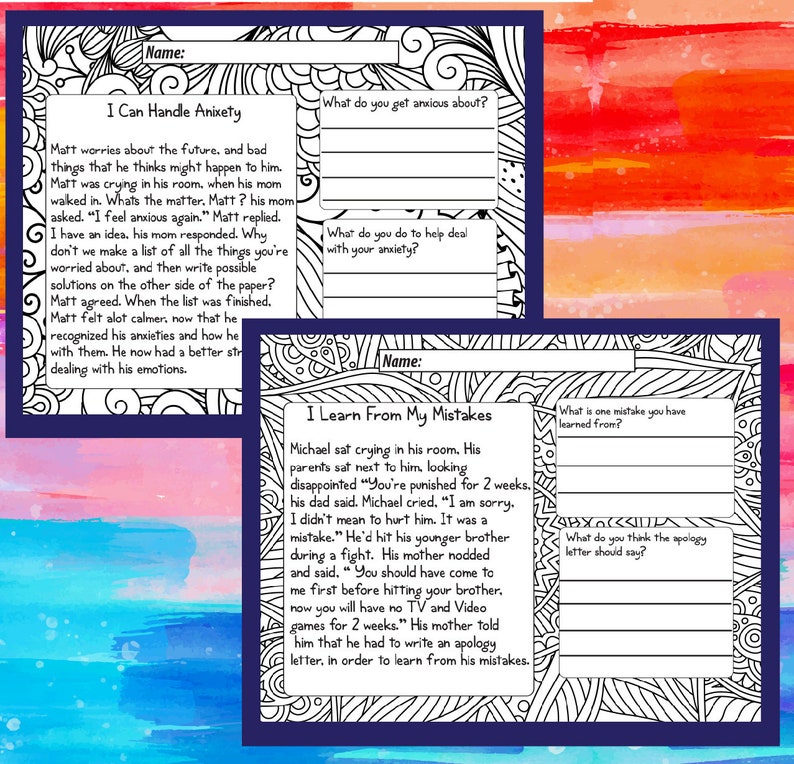 Name:
I Can Handle Anixety
Matt worries about the future, and bad
things that he thinks might happen to him.
Matt was crying in his room, when his mom
walked in. Whats the matter, Matt ? his mom
asked. “I feel anxious again.” Matt replied.
I have an idea, his mom responded. Why
don't we make a list of all the things you're
worried about, and then write possible
solutions on the other side of the paper?
Matt agreed. When the list was finished,
Matt felt alot calmer, now that he
recognized his anxieties and how he
with them. He now had a better
dealing with his emotions.
What do you get anxious about?
What do you do to help deal
with your anxiety?
Name:
I Learn From My Mistakes
Michael sat crying in his room, His
parents sat next to him, looking
disappointed “You're punished for 2 weeks,
his dad said. Michael cried, “I am sorry,
I didn't mean to hurt him. It was a
mistake.” He'd hit his younger brother
during a fight. His mother nodded
and said, “ You should have come to
me first before hitting your brother,
now you will have no TV and Video
games for 2 weeks.” His mother told
him that he had to write an apology
letter, in order to learn from his mistakes.
What is one mistake you have
learned from?
What do you think the apology
letter should say?